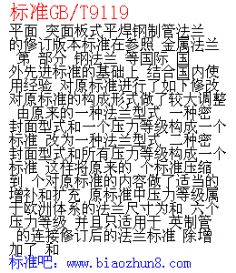 标准GB/T9119
平面 突面板式平焊钢制管法兰
的修订版本标准在参照 金属法兰
第 部分 钢法兰 等国际 国
外先进标准的基础上 结合国内使
用经验 对原标准进行了如下修改
对原标准的构成形式做了较大调整
由原来的一种法兰型式 一种密
封面型式和一个压力等级构成一个
标准 改为一种法兰型式 二种密
封面型式和所有压力等级构成一个
标准 这样将原来的 个标准压缩
到 个对原标准的内容做了适当的
增补和扩充 原标准中压力等级属
于欧洲体系的法兰尺寸为和 六个
压力等级 并且只适用于 英制管
的连接修订后的法兰标准 除增
加了 和
标准吧:www.biaozhun8.com